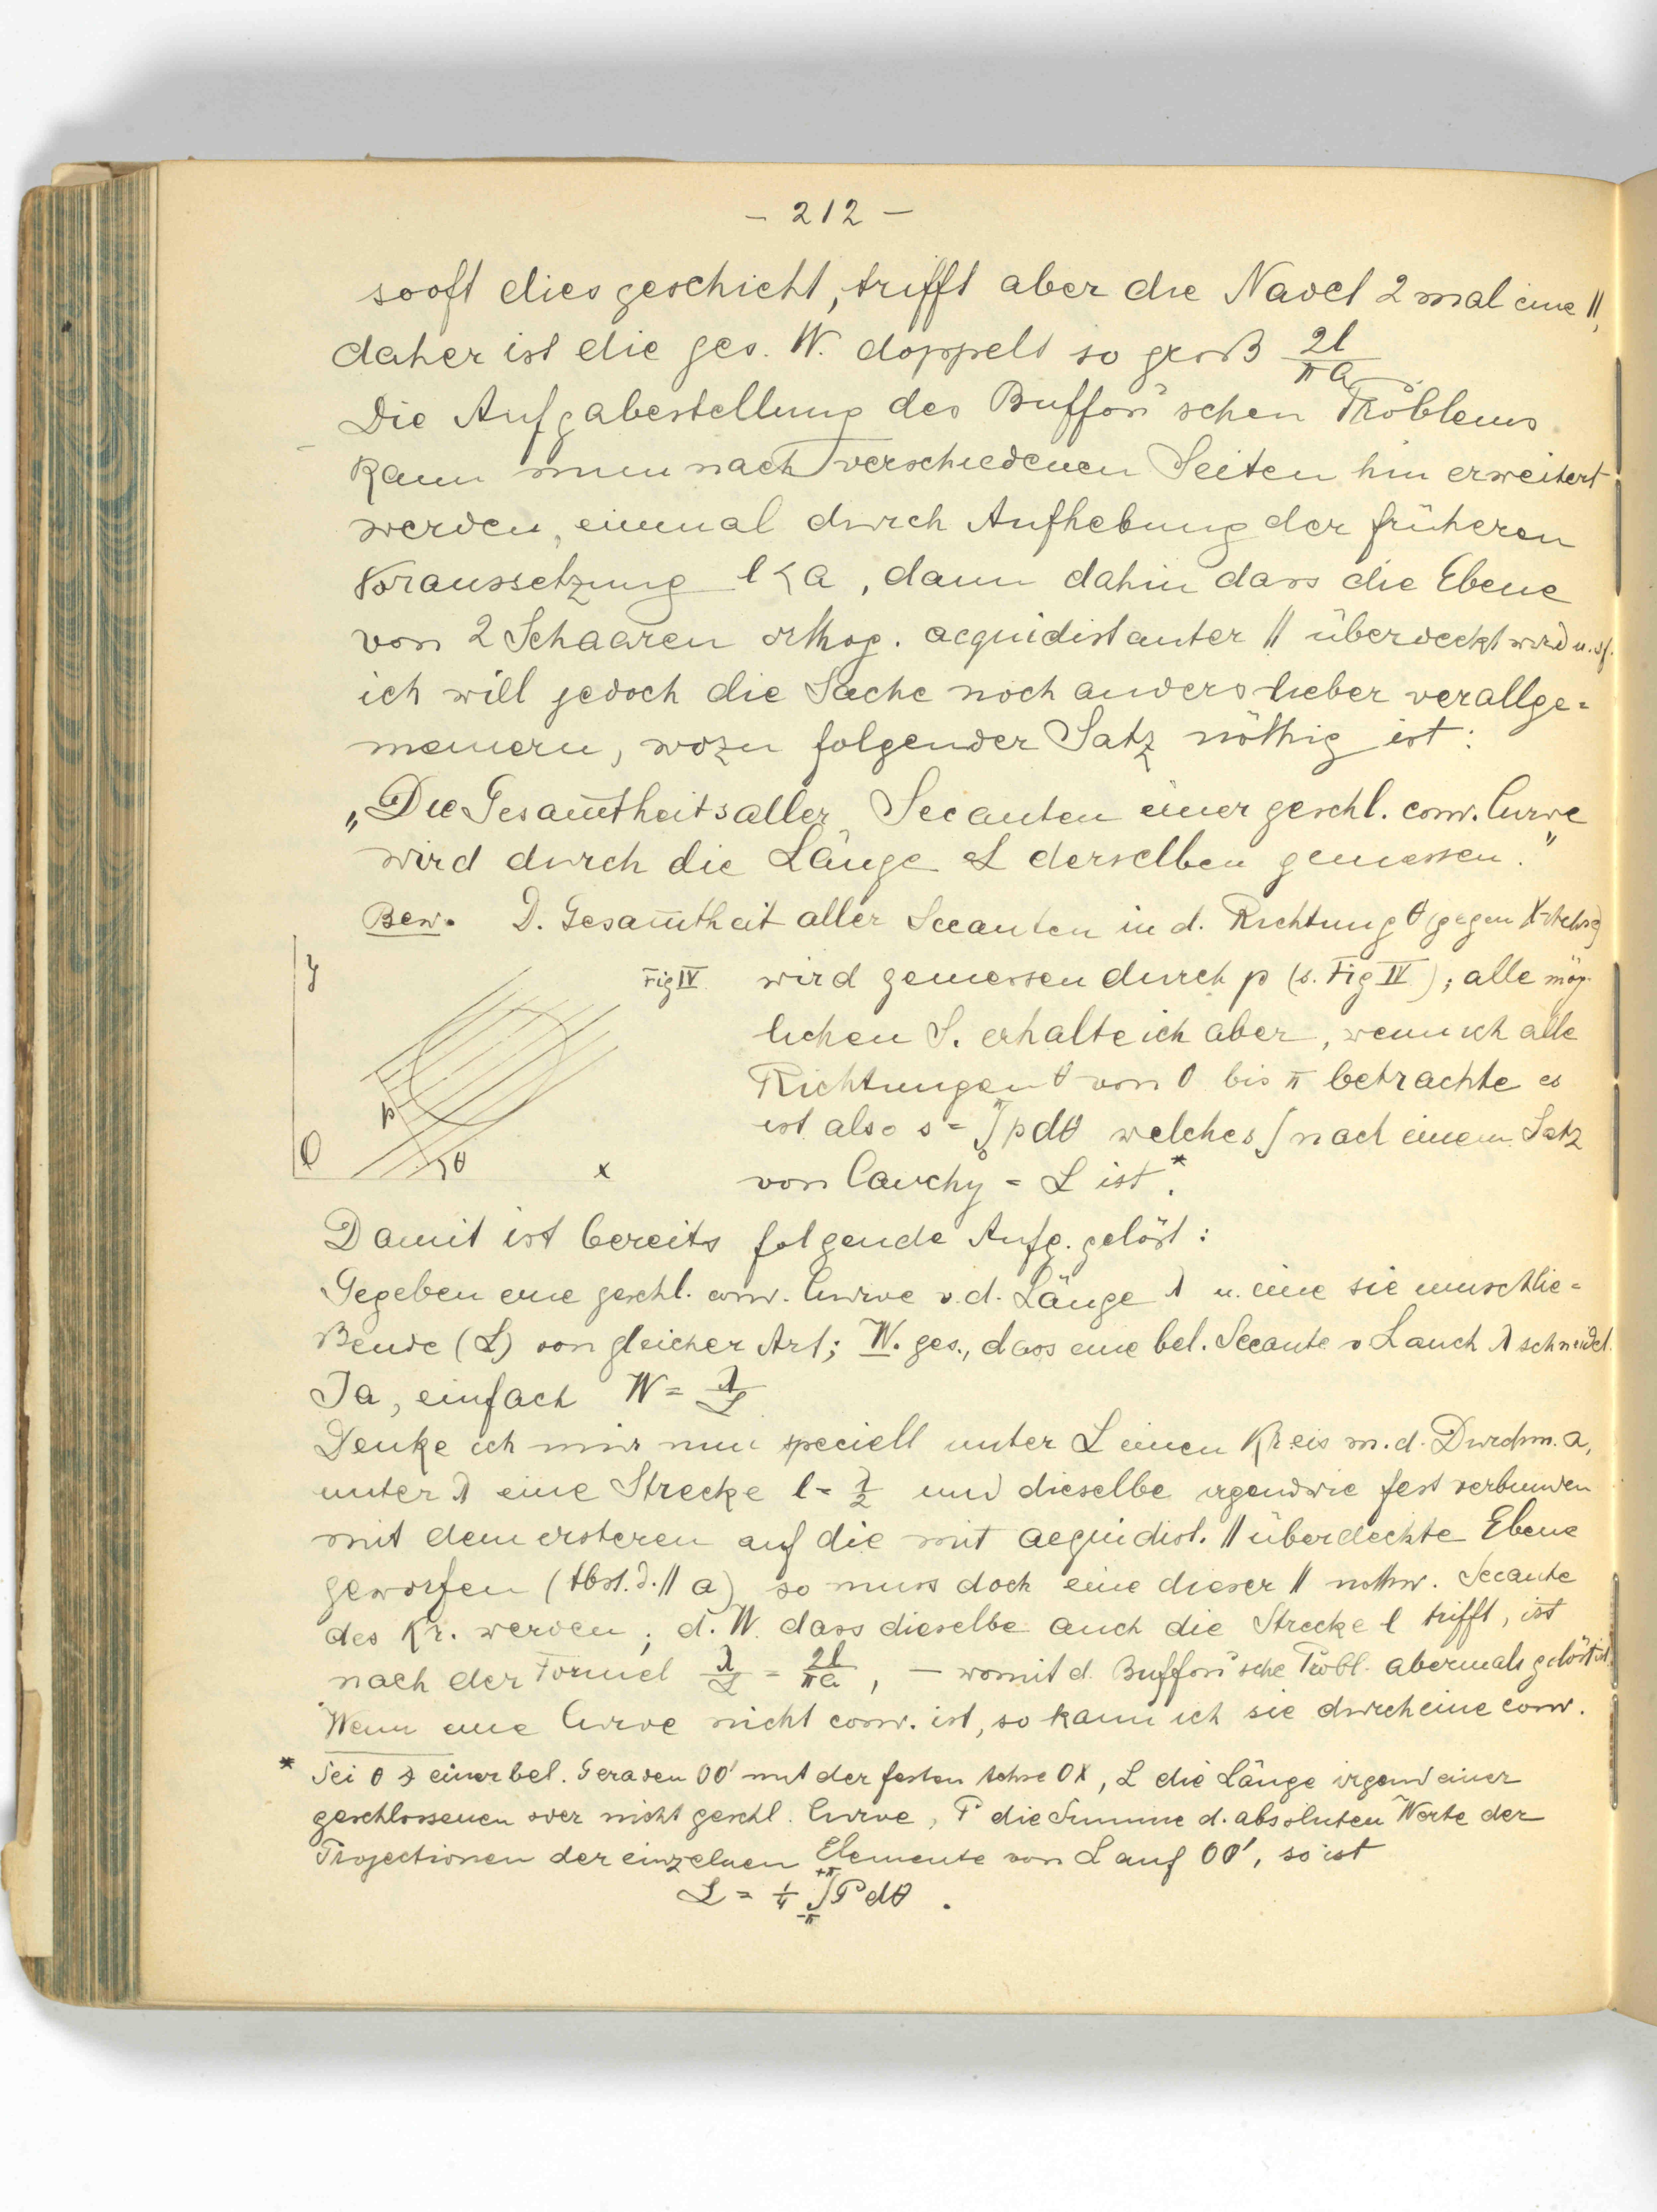 - 212 -
sooft dies geschieht, trifft aber die Nadel 2 mal eine ||,
daher ist die ges. W. doppelt so groß 2l/πa
Die Aufgabestellung des Buffon'schen Problems
kann nun nach verschiedenen Seiten hin erweitert
werden, einmal durch Aufhebung der früheren
Voraussetzung l < a, dann dahin dass die Ebene
von 2 Schaaren orthog. aequidistanter || überdeckt wird u.sf.
ich will jedoch die Sache noch anders lieber verallge=
meinern, wozu folgender Satz nöthig ist:
„Die Gesam̅theit aller Secanten einer geschl. conv. Curve
wird durch die Länge L derselben gemessen."
Bew. D. Gesam̅theit aller Secanten in d. Richtung θ (gegen X-Achse)
y
Fig IV
wird gemessen durch p (s. Fig IV); alle mög-
lichen S. erhalte ich aber, wenn ich alle
Richtungen θ von 0 bis π betrachte es
p
ist also s = ∫₀^π p dθ welches ∫ nach einem Satz
O θ x
von Cauchy = L ist.*
Damit ist bereits folgende Aufg. gelöst:
Gegeben eine geschl. conv. Curve v. d. Länge λ u. eine sie umschlie=
ßende (L) von gleicher Art; W. ges., dass eine bel. Secante v L auch λ schneidet.
Ja, einfach W = λ/L
Denke ich mir nun speciell unter L einen Kreis m. d. Durchm. a,
unter λ eine Strecke l = λ/2 und dieselbe irgendwie fest verbunden
mit dem ersteren auf die mit aequidist. || überdeckte Ebene
geworfen (Abst. d. || a) so muss doch eine dieser || nothw. Secante
des Kr. werden; d. W. dass dieselbe auch die Strecke l trifft, ist
nach der Formel λ/L = 2l/πa, — womit d. Buffon'sche Probl. abermals gelöst ist.
Wenn eine Curve nicht conv. ist, so kann ich sie durch eine conv.
* Sei θ ∢ einer bel. Geraden OO' mit der festen Achse OX, L die Länge irgend einer
geschlossenen oder nicht geschl. Curve, P die Summe d. absoluten Werte der
Projectionen der einzelnen Elemente von L auf OO', so ist
L = 1/4 ∫₋π^+π P dθ.